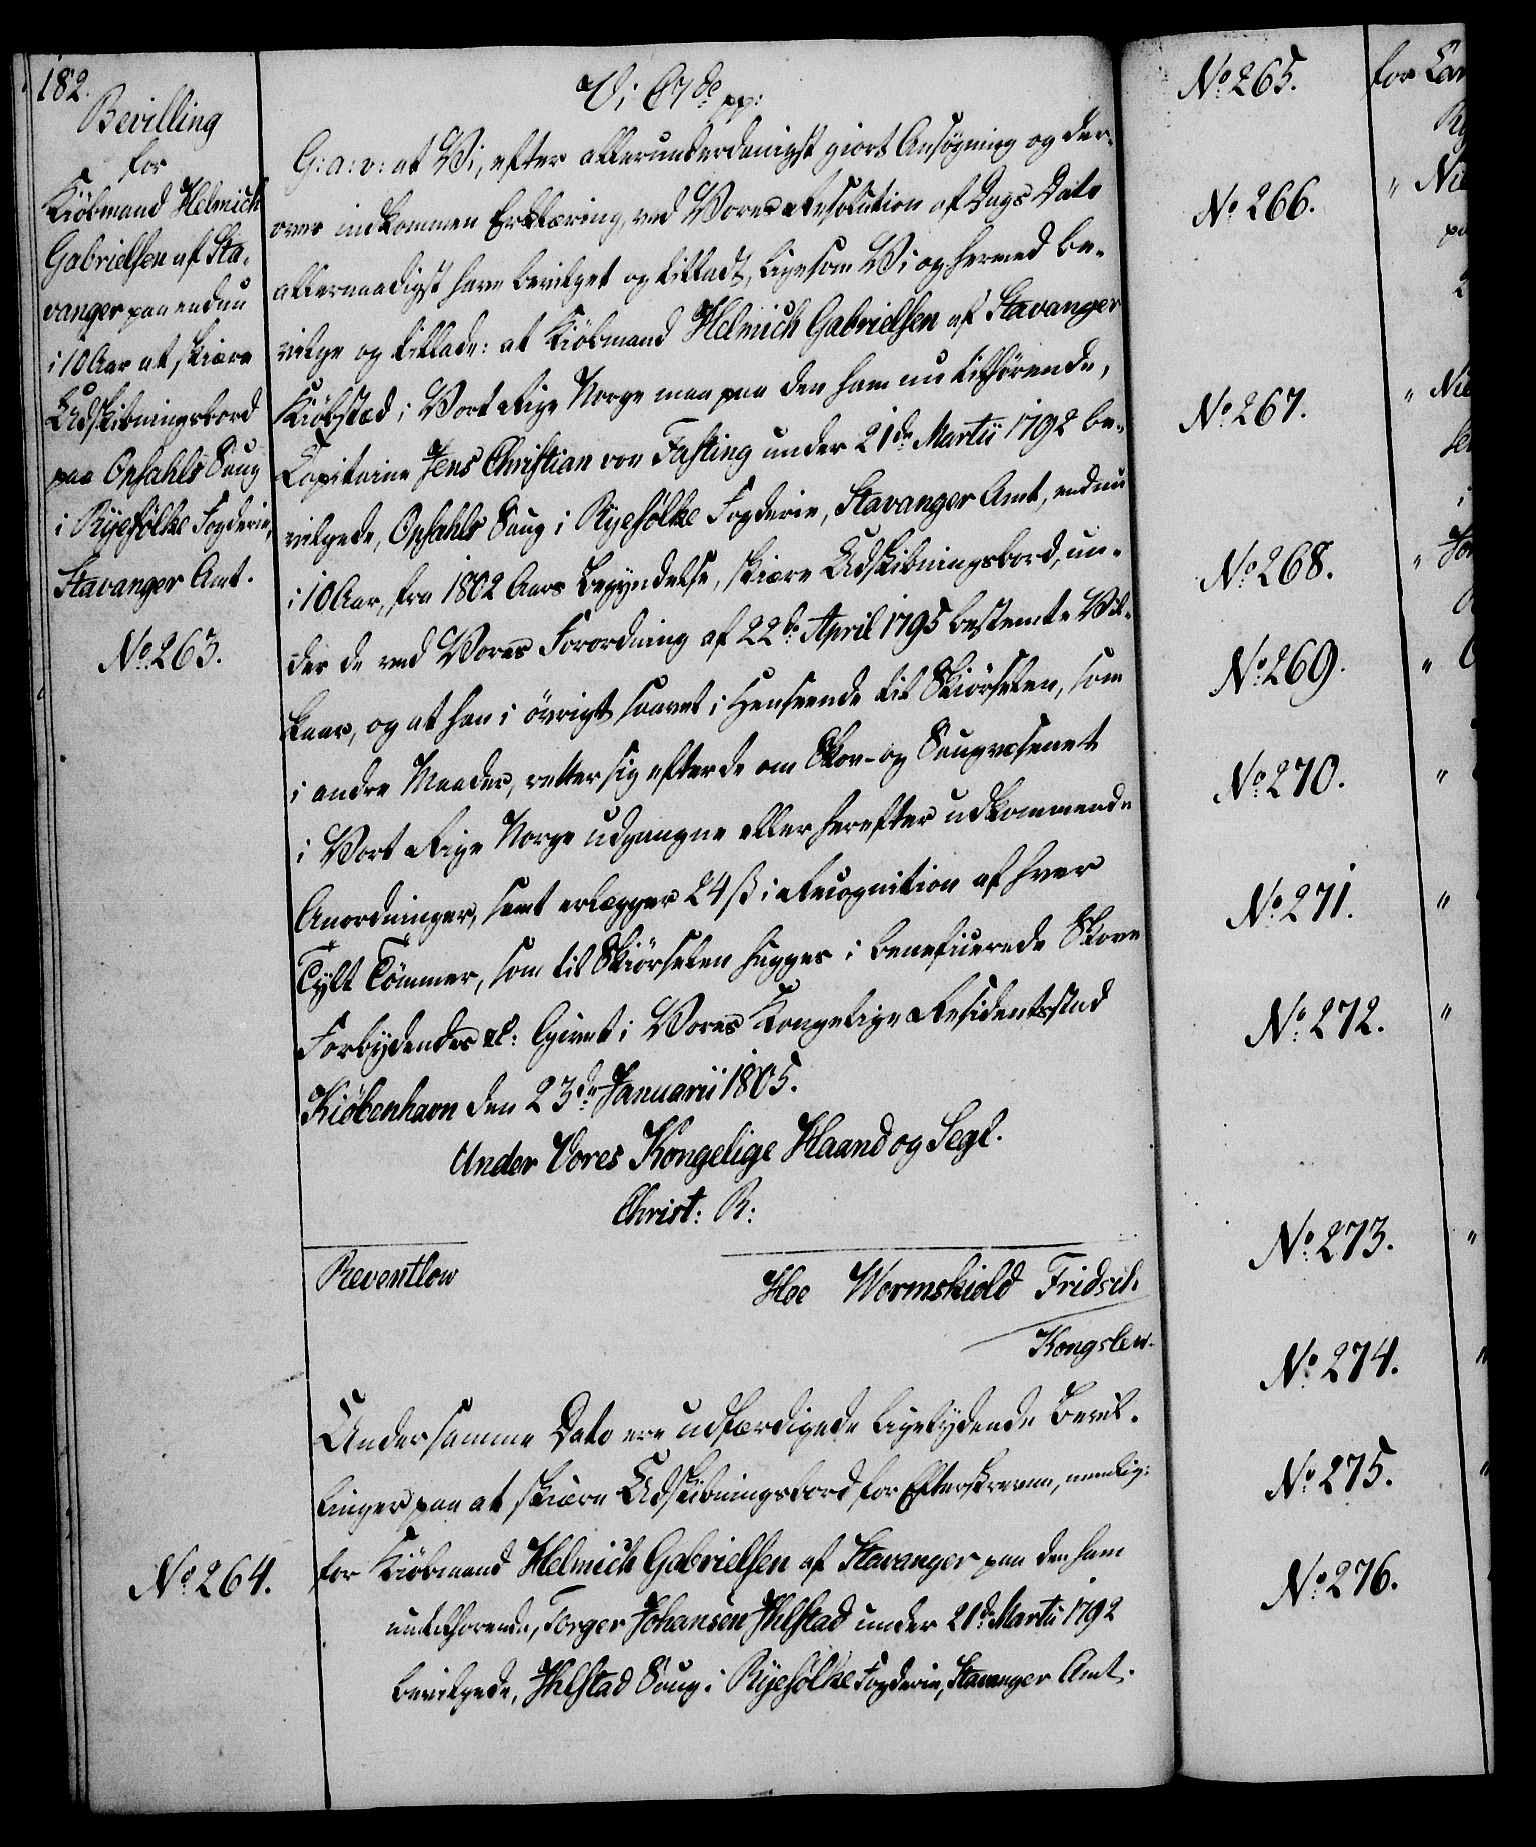 182.
Bevilling
for
Kiöbmand Helmich
Gabrielsen af Sta-
vanger paa endnu
i 10 Aar at skiære
Udskibningsbord
paa Opsahls Saug
i Ryefÿlke Fogderie,
Stavanger Amt.
No. 263.
Vi C 7de pp:
G: a: v: at Vi, efter allerunderdanigst giort Ansøgning og der-
over indkommen Erklæring, ved Vores Resolution af Dags Dato
allernaadigst have bevilget og tilladt, ligesom Vi og hermed be-
vilge og tillade: at Kiöbmand Helmich Gabrielsen af Stavanger
Kiöbsted i Vort Rige Norge maa paa den ham nu tilhörende,
Capitaine Jens Christian von Fasting under 21de Martii 1792 be-
vilgede, Opsahls Saug i Ryefölke Fogderie, Stavanger Amt, endnu
i 10 Aar, fra 1802 Aars Begyndelse, skiære Udskibningsbord, un-
der de ved Vores Forordning af 22de April 1795 bestemte Vil-
kaar, og at han i övrigt saavel i Henseende til Skiörselen, som
i andre Maader, retter sig efter de om Skov- og Saugvæsenet
i Vort Rige Norge udgangne eller herefter udkommende
Anordninger, samt erlægger 24 ß i Recognition af hver
Tylt Tömmer, som til Skiörselen hugges i beneficerede Skove
Forbydendes &c: Givet i Vores Kongelige Residentsstad
Kiöbenhavn den 23de Januarii 1805.
Under Vores Kongelige Haand og Segl.
Christ: R:
Reventlow
Hoe Wormskiold Fridsch.
Kongslew.
Under samme Dato ere udfærdigede ligelydende Bevil-
linger paa at skiære Udskibningsbord for Efterskrevne, nemlig:
No. 264.
for Kiöbmand Helmich Gabrielsen af Stavanger paa den ham
nu tilhörende, Torger Johansen Hhlstad under 21de Martii 1792
bevilgede, Hhlstad Saug i Ryefölke Fogderie, Stavanger Amt.
No. 265.
for
No. 266.
No. 267.
No. 268.
No. 269.
No. 270.
No. 271.
No. 272.
No. 273.
No. 274.
No. 275.
No. 276.